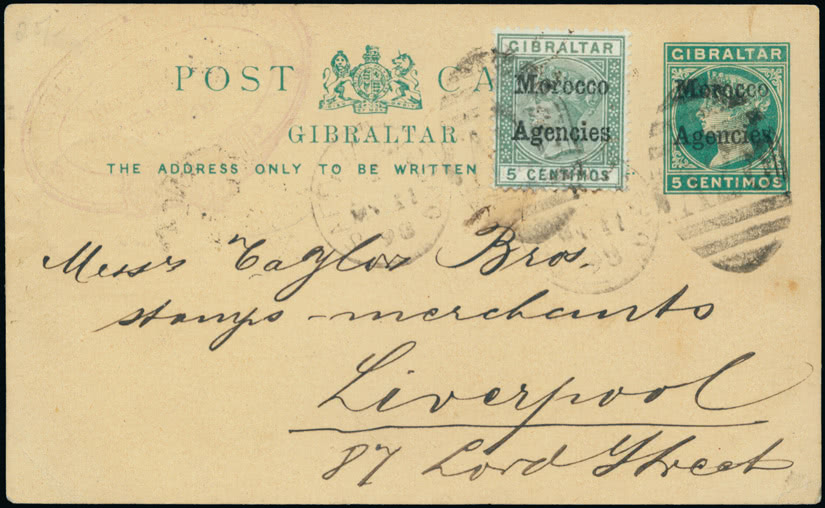 POST CA
GIBRALTAR
THE ADDRESS ONLY TO BE WRITTEN
GIBRALTAR
Morocco
Agencies
5 CENTIMOS
GIBRALTAR
Morocco
Agencies
5 CENTIMOS
Messrs Taylor Bros.
stamps-merchants
Liverpool
87 Lord Street